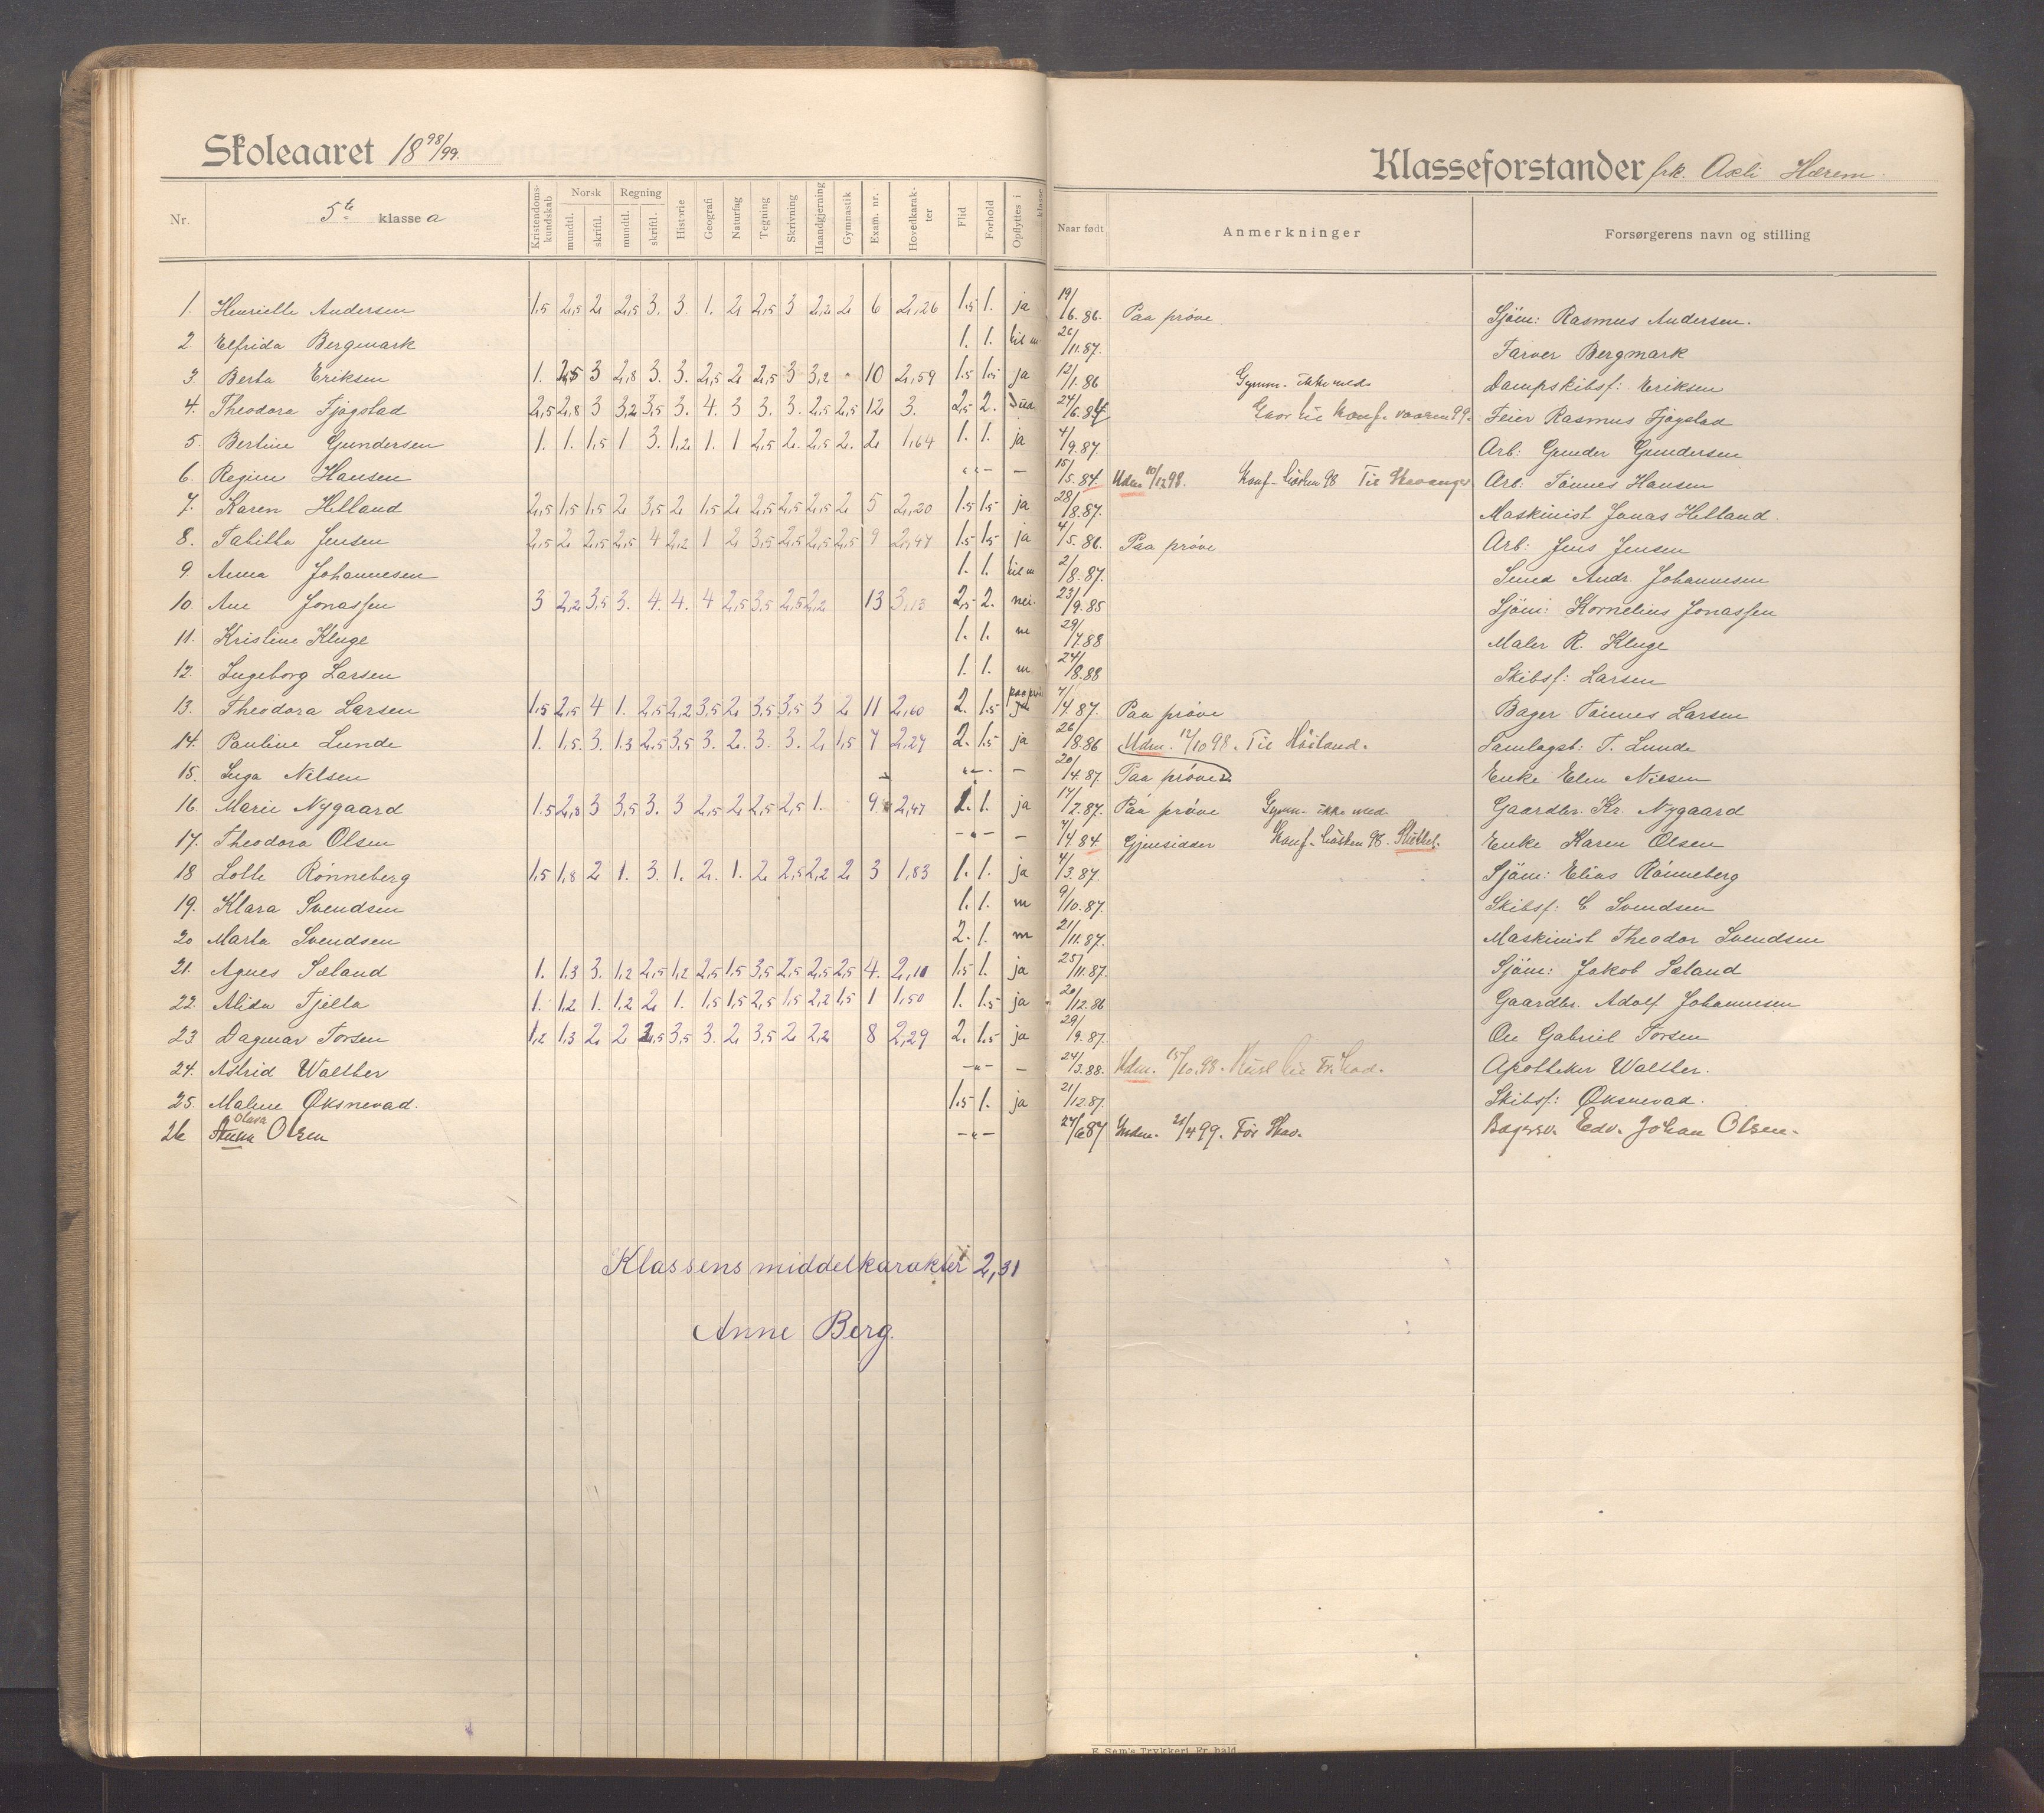 Skoleaaret 1898/99.
Klasseforstander frk. Axeli Hærem.
Nr. 5te klasse a Kristendomskundskab Norsk mundtl. skriftl. Regning mundtl. skriftl. Historie Geografi Naturfag Tegning Skrivning Haandgjerning Gymnastik Exam. nr. Hovedkarakter Flid Forhold Opflyttes i klasse Naar født Anmerkninger Forsørgerens navn og stilling
1. Henriette Andersen 1,5 2,5 2 2,5 3. 3. 1. 2 2,5 3 2,2 2 6 2,26 1.5 1. ja 19/6.86. Paa prøve Sjøm: Rasmus Andersen.
2. Elfrida Bergmark 1. 1. til m 26/11.87. Farver Bergmark
3. Berta Eriksen 1. 2,5 3 2,8 3. 3. 2,5 2 2,5 3 3,2 10 2,59 1.5 1.5 ja 12/1.86 Gymn. ikke med. Dampskibsf: Eriksen
4. Theodora Fjogstad 2,5 2,8 3 3,2 3,5 3. 4. 3 3. 3. 2,5 2,5 12 3. 2,5 2. 24/6.84 til konf. vaaren 99. Feier Rasmus Fjogstad
5. Bertine Gundersen 1. 1. 1,5 1 3. 1,2 1. 1 2,5 2. 2,5 2. 2 1,64 1. 1. ja 4/9.87. Arb: Gunder Gundersen
6. Regine Hansen " - — 15/5.84 Udm. 10/12 98. Konf. høsten 98 Til Stavanger Arb: Tønnes Hansen
7. Karen Helland 2,5 1,5 1,5 2 3,5 2 1,5 2 2,5 2,5 2,5 2 5 2,20 1.5 1.5 ja 28/8.87. Maskinist Jonas Helland.
8. Tabitta Jensen 2,5 2 2,5 2,5 4 2,2 1 2 3,5 2,5 2,5 2,5 9 2,47 1.5 1.5 ja 4/5.86. Paa prøve Arb: Jens Jensen
9. Anna Johannesen 1. 1. til m 2/8.87. Smed Andr. Johannesen
10. Ane Jonassen 3 2,2 3,5 3. 4. 4. 4 2,5 3,5 2,5 2,2 13 3,13 2,5 2. nei. 23/9.85 Sjøm: Kornelius Jonassen
11. Kristine Kluge 1. 1. m 29/7.88 Maler R. Kluge
12. Ingeborg Larsen 1. 1. m 24/8.88 Skibsf: Larsen
13. Theodora Larsen 1,5 2,5 4 1. 2,5 2,2 3,5 2 3,5 3,5 3 2 11 2,60 2. 1.5 paa prøve ja 4/4.87. Paa prøve Bager Tønnes Larsen
14. Pauline Lunde 1. 1,5. 3. 1.3 2,5 3,5 3. 2. 3. 3. 2, 1,5 7 2,27 2. 1.5 ja 26/8.86 Udm. 12/10 98. Til Høiland. Samlagsb: T. Lunde
15. Inga Nilsen " - — 20/4.87. Paa prøve Enke Elen Nilsen
16. Marie Nygaard 1.5 2,8 3 3,5 3. 3 2,5 2 2,5 2,5 1. 9 2,47 1. 1. ja 17/2.87. Paa prøve Gymn. ikke med. Gaardbr. Kr. Nygaard
17. Theodora Olsen - " - — 4/4.84 Gjensidder Konf. høsten 98. Sluttet. Enke Karen Olsen
18 Lolle Rønneberg 1,5 1,8 2 1. 3. 1. 2. 1. 2 2,5 2,2 2 3 1,83 1. 1. ja 4/3.87. Sjøm: Elias Rønneberg
19. Klara Svendsen 1. 1. m 9/10.87. Skibsf: C Svendsen
20 Marta Svendsen 2. 1. m 21/11.87. Maskinist Theodor Svendsen
21. Agnes Sæland 1. 1.3 3. 1,2 2,5 1,2 2,5 1,5 3,5 2,5 2,5 2,5 4. 2,10 1.5 1. ja 25/11.87. Sjøm: Jakob Sæland
22. Alida Tjelta 1. 1,2 1. 1,2 2. 1. 1,5 1,5 2,5 1,5 2,2 1,5 1 1,50 1. 1.5 ja 20/12.86 Gaardbr. Adolf Johannesen
23 Dagmar Torsen 1,2 1,3 2 2 2,5 3,5 3. 2 3,5 2 2,2 8 2,29 2. 1.5 ja 29/9.87. Gabriel Torsen
24. Astrid Walther - " - — 24/3.88. Udm. 15/10.98. Apotheker Walther.
25. Malene Øksnevad. 1.5 1. ja 21/12.87. Skibsf: Øksnevad.
Olava
26 Anna Olsen - " - 27/6 87 Indm. 21/4 99. Før Stav. Edv. Johan Olsen.
Klassens middelkarakter 2,31
Anne Berg.